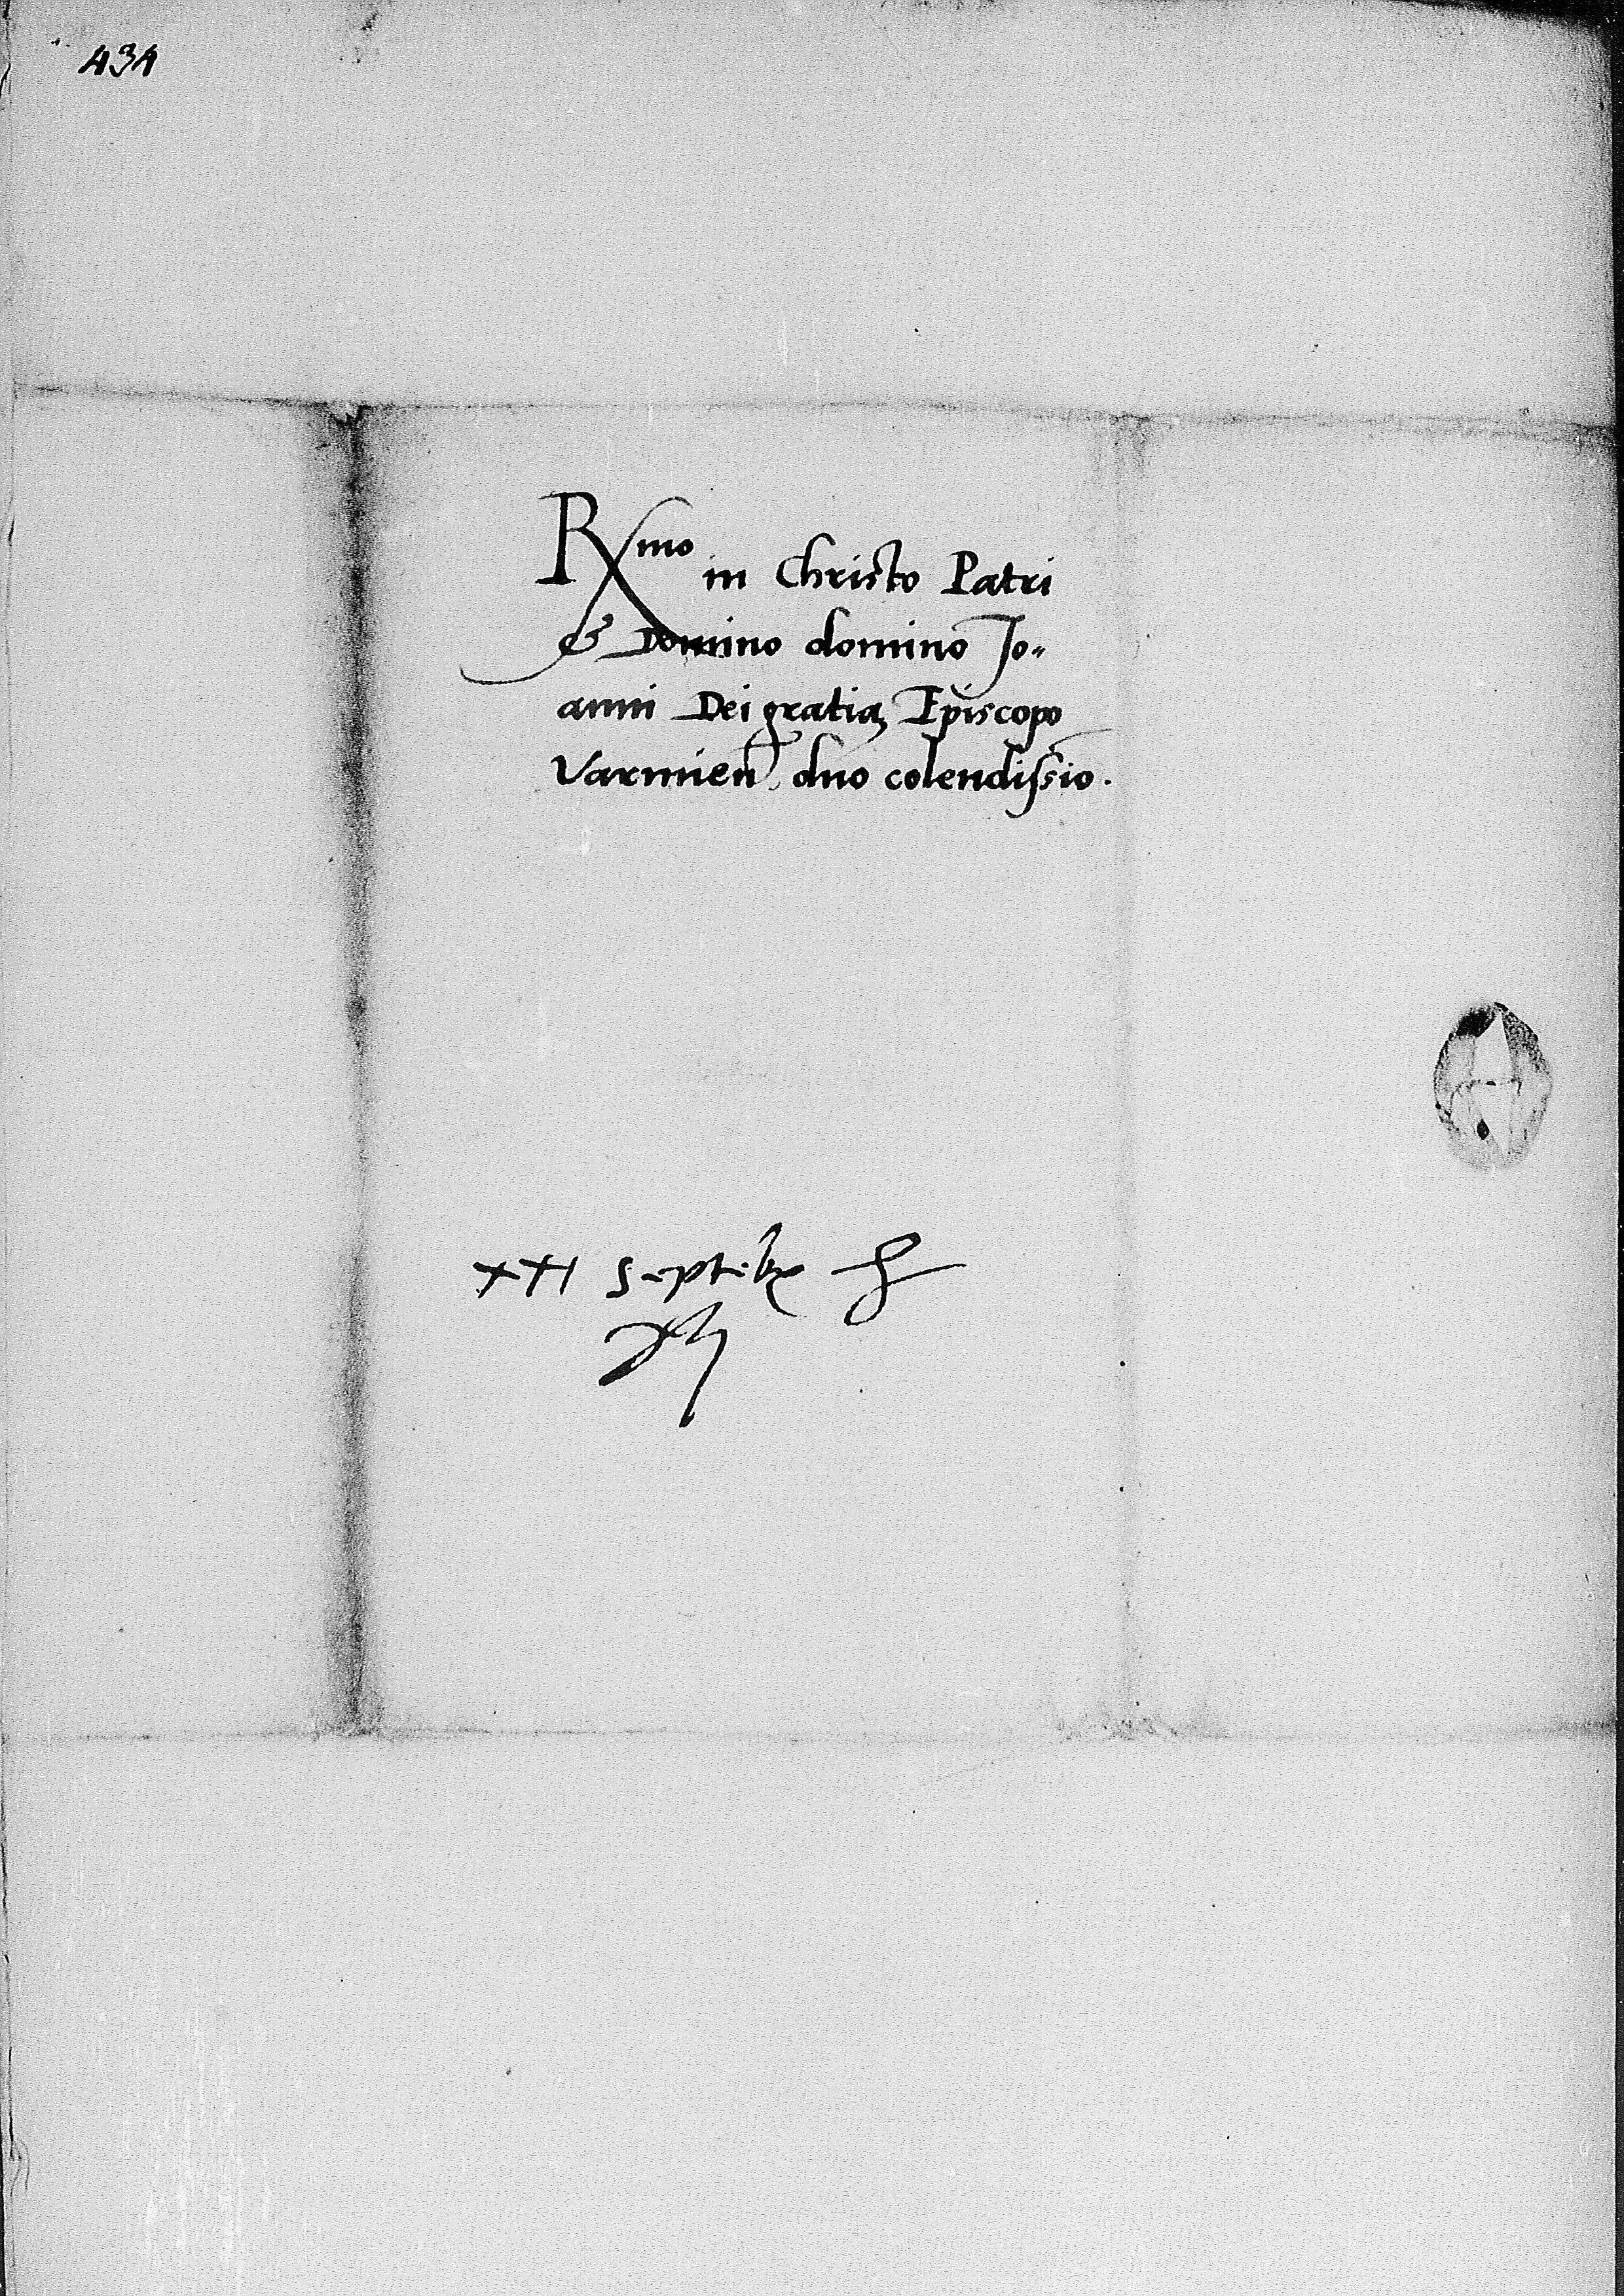 431
Rmo in Christo Patri
& Domino domino Jo„
anni Dei gratia Episcopo
Varmien dno colendissio.
XXI Septebr